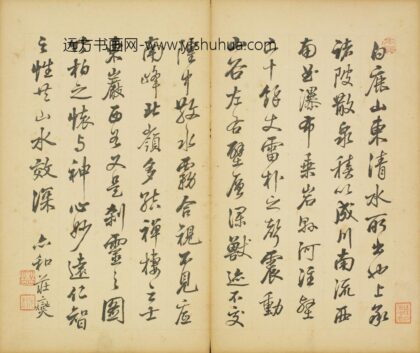 远方书画网-www.yfshuhua.com
白鹿山東清水所出也上承
諸陂散泉積以成川南流西
南屈瀑布乘岩縣河注壑
二十餘丈雷扑之聲震動
山谷左右壁層深獸迹不交
隍中散水霧合視不見底
南峰北嶺多結禪棲之士
東巖西谷又是剎靈之圖
竹柏之懷与神心妙遠仁智
之性共山水效深 和莊